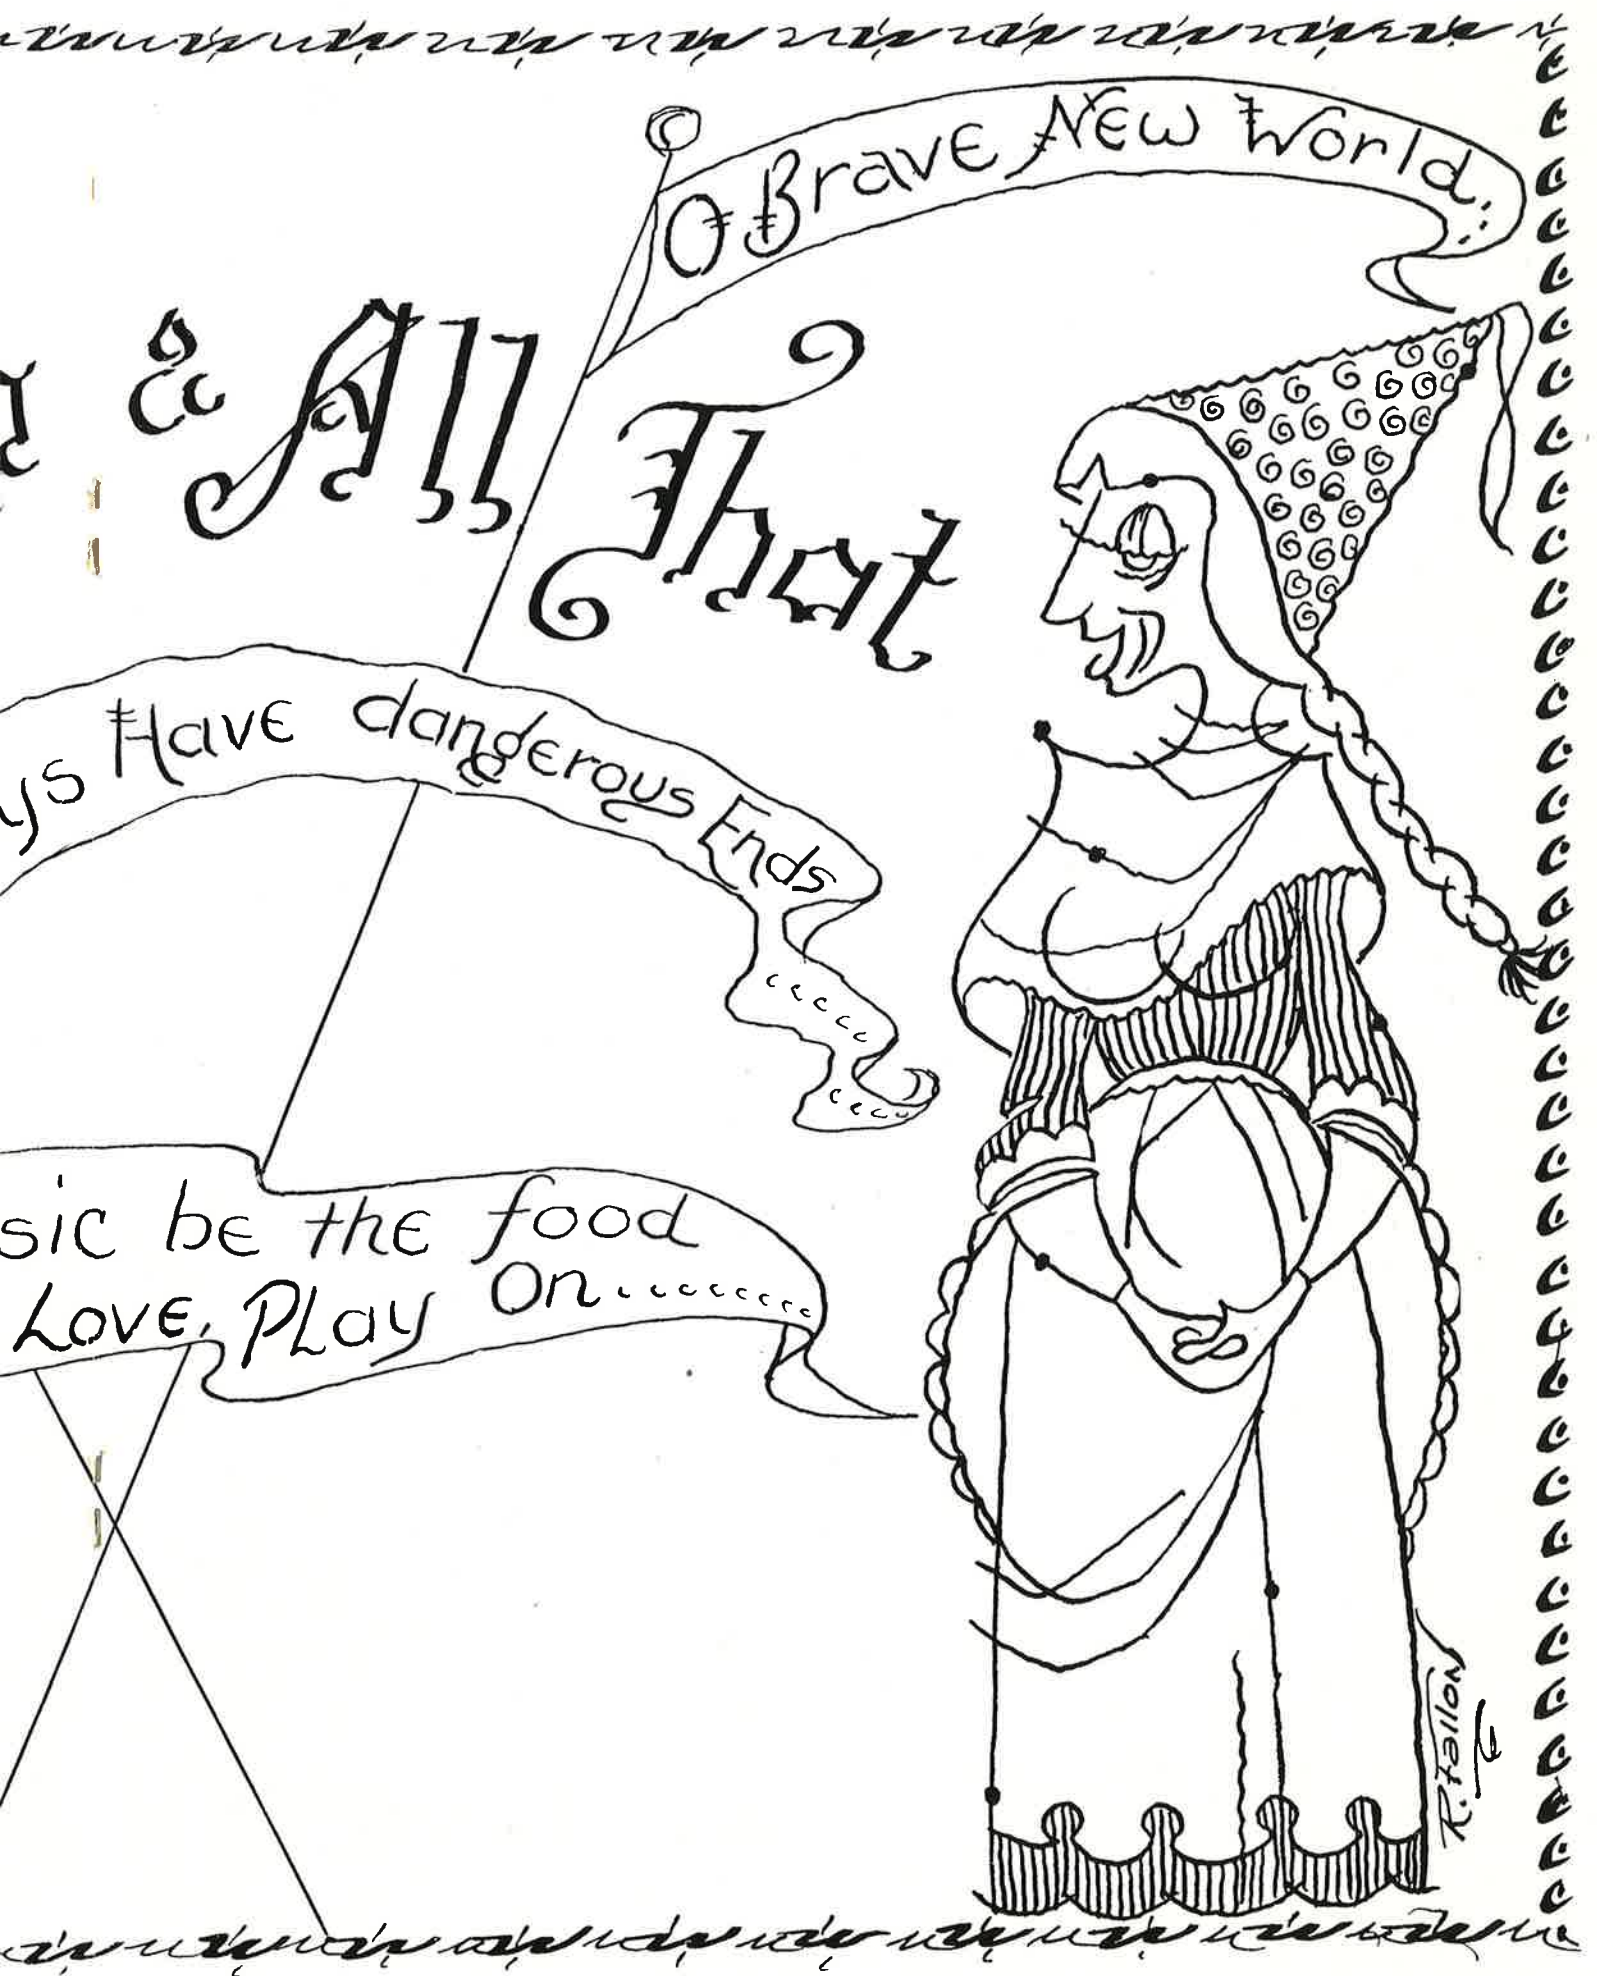 O Brave New World...
& All
That
ys Have dangerous Ends
sic be the food
Love, Play On........
R. Fallon